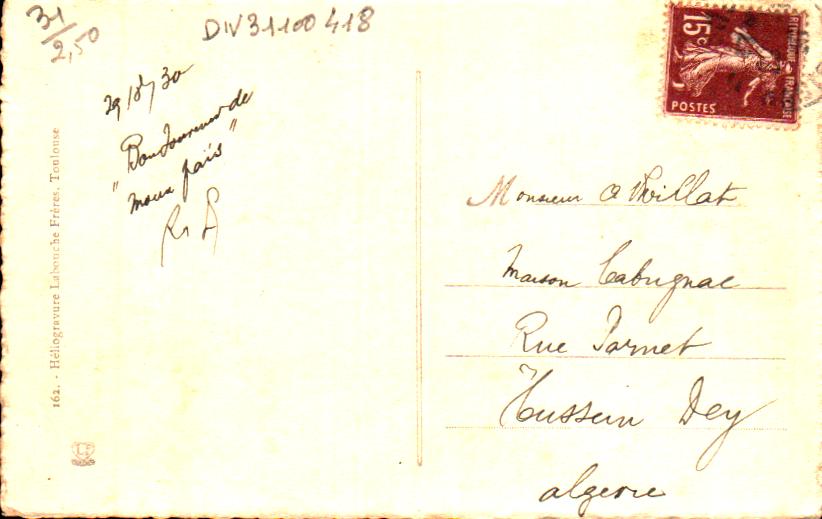 31/2,50
DIV31100418
29/8/30
"Boun Jour
de
moun païs"
162. - Héliogravure Labouche Frères, Toulouse
LF
15c
POSTES
REPUBLIQUE FRANÇAISE
Monsieur
Maison Cabugnac
Rue Parnet
Hussein Dey
algerie